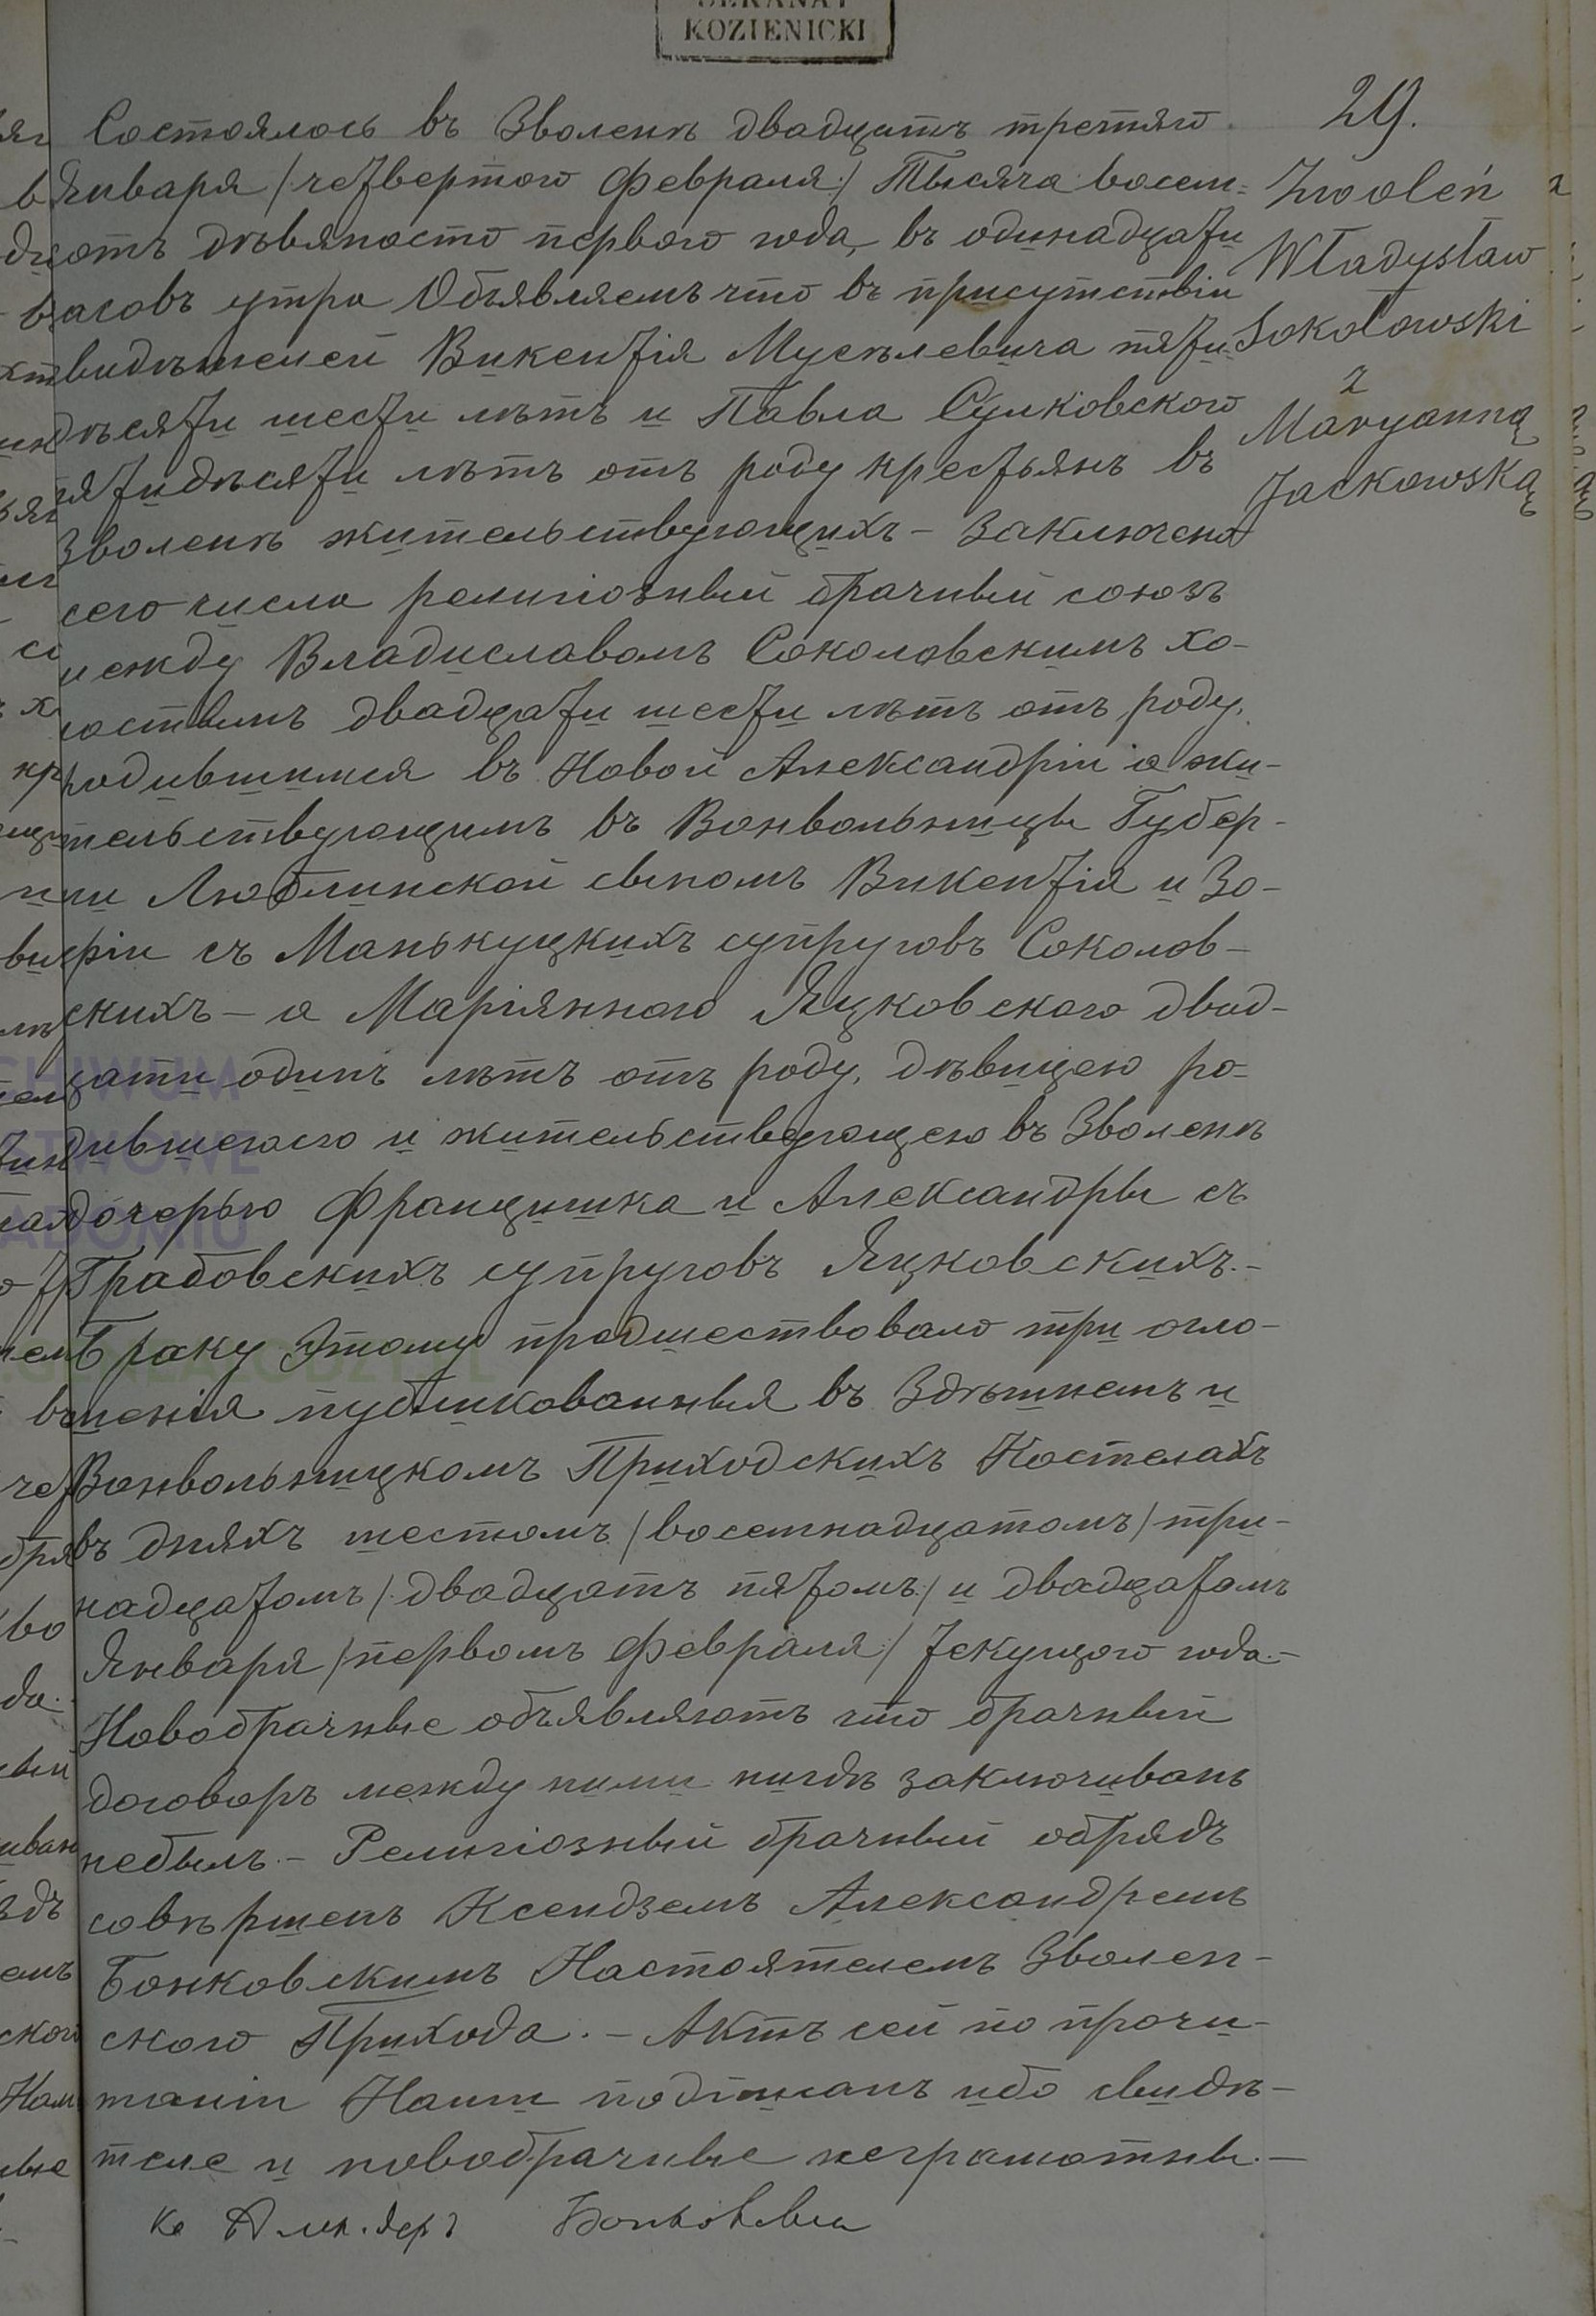 DEKANAT
KOZIENICKI
29.
Zwoleń
Władysław
Sokołowski
z
Maryanną
Jackowską
Состоялось въ Зволенѣ двадцать третяго
Января /четвертого Февраля/ Тысяча восем=
сотъ дѣвяносто первого года, въ одинадцати
часовъ утра Объявляемъ что въ присутствіи
свидѣтелей Викентія Мусѣлевича пяти
дѣсяти шести лѣтъ и Павла Сулковского
пятидѣсяти лѣтъ отъ роду крестьянъ въ
Зволенѣ жительствующихъ - Заключенъ
сего числа религіозный брачный союзъ
между Владиславомъ Соколовскимъ хо-
лостымъ двадцати шести лѣтъ отъ роду,
родившимся въ Новой Александріи а жи-
тельствующимъ въ Вонвольницы Губер-
ніи Люблинской сыномъ Викентія и Зо-
фіи съ Манькуцкихъ супруговъ Соколов-
скихъ - а Маріянною Яцковского двад-
цати одинъ лѣтъ отъ роду, дѣвицею ро-
дившеюсю и жительствующею въ Зволенѣ
дочерью Францишка и Александры съ
Грабовскихъ супруговъ Яцковскихъ.-
Браку Этому предшествовало три огло-
шенія публикованныя въ Здѣшнемъ и
Вонвольницкомъ Приходскихъ Костелахъ
въ дняхъ шестомъ /восемнадцатомъ/ три-
надцатомъ /двадцать пятомъ/ и двадцатомъ
Января /первомъ Февраля/ текущого года.-
Новобрачные объявляютъ что брачный
договоръ между ними нигдѣ заключиванъ
небылъ.- Религіозный брачный обрядъ
совѣршенъ Ксендземъ Александремъ
Бонковскимъ Настоятелемъ Зволен-
ского Прихода.- Актъ сей по прочи-
таніи Нами подписанъ ибо свидѣ-
теле и новобрачные неграмотны.-